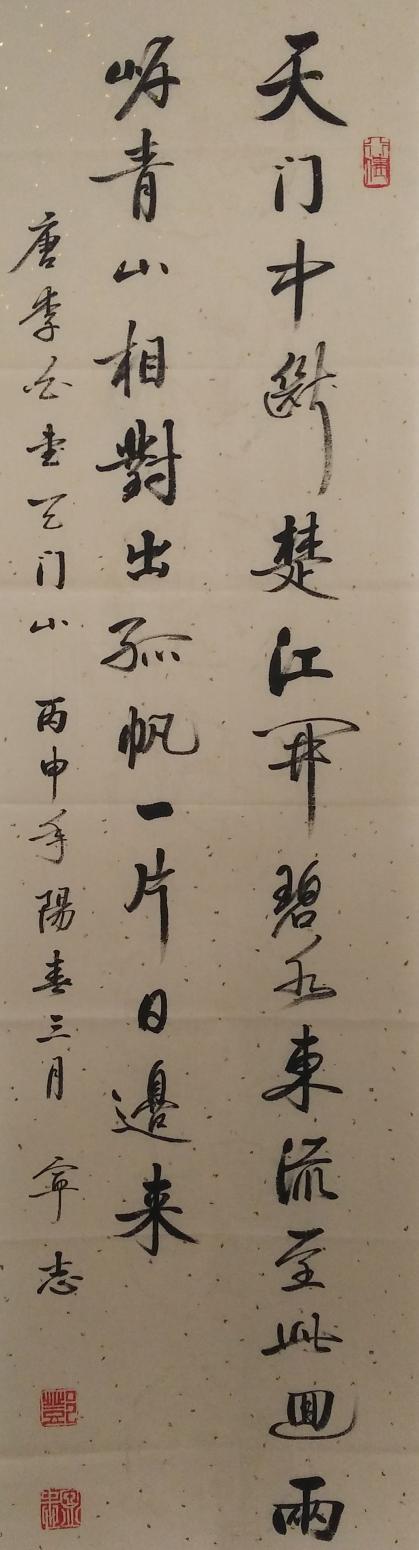 天门中斷楚江開碧水東流至此迴兩
岸青山相對出孤帆一片日邊来
唐李白望天门山 丙申年陽春三月 志